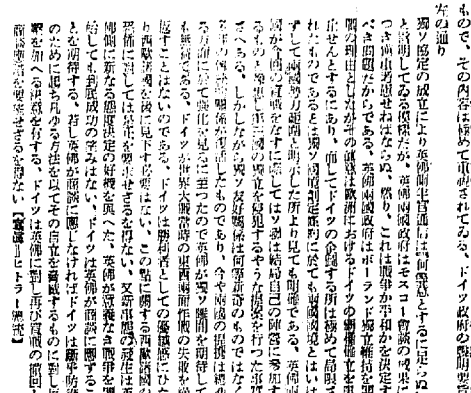 もので、その内容は極めて重視されてゐる、ドイツ政府の聲明要旨
左の通り
獨ソ協定の成立により英佛兩半官通信は「何等意とするに足らぬ
と説明してゐる模樣だが、英佛兩國政府はモスコー會談の成果に
つき慎重考慮せねばならぬ、然り、これは戰爭か平和かを決定す
べき問題だからである、英佛兩國政府はポーランド獨立維持を開
戰の理由としたがその眞意は歐洲におけるドイツの覇權確立を阻
止せんとするにあり、而してドイツの企圖する所は極めて局限さ
れたものであるとは獨ソ國境劃定條約に於ても兩國國境とはいは
ずして兩國勢力範圍と明示した所より見ても明確である、英佛兩
國が今回の宣戰をなすに際してはソ聯は結局自己の陣營に參加す
るものと
べある、しかしながら獨ソ友好關係は何等新奇のものではなく
關係が復活したものであり、今や兩國の提携は
る方面に於て強化を見るに至つたので英佛が獨ソ離間を期待して
も無駄である、ドイツが世界大戰當時の東西兩面作戰の失敗を繰
返すことはないのである、ドイツは勝利者としての優越感にひた
り西歐諸國を後に見下す必要はない、この點に關する西歐諸國の
恐怖に對しては是正を要求せざるを得ない、又新事態の發生は英
佛側に新たなる態度決定の好機を與へた、英佛が意義なき戰爭を開
始しても到底成功の望みはない、ドイツは英佛が商談に應ずるこ
とを期待する、若し英佛が商談に應じなければドイツは斷乎防
のために起ち凡ゆる方法を以てその自立を脅威するものに對し反
撃を加へる決意を有する、ドイツは英佛に對し再び宣戰の撤回と
商談應諾を要求せざるを得ない【寫眞＝ヒトラー總統】